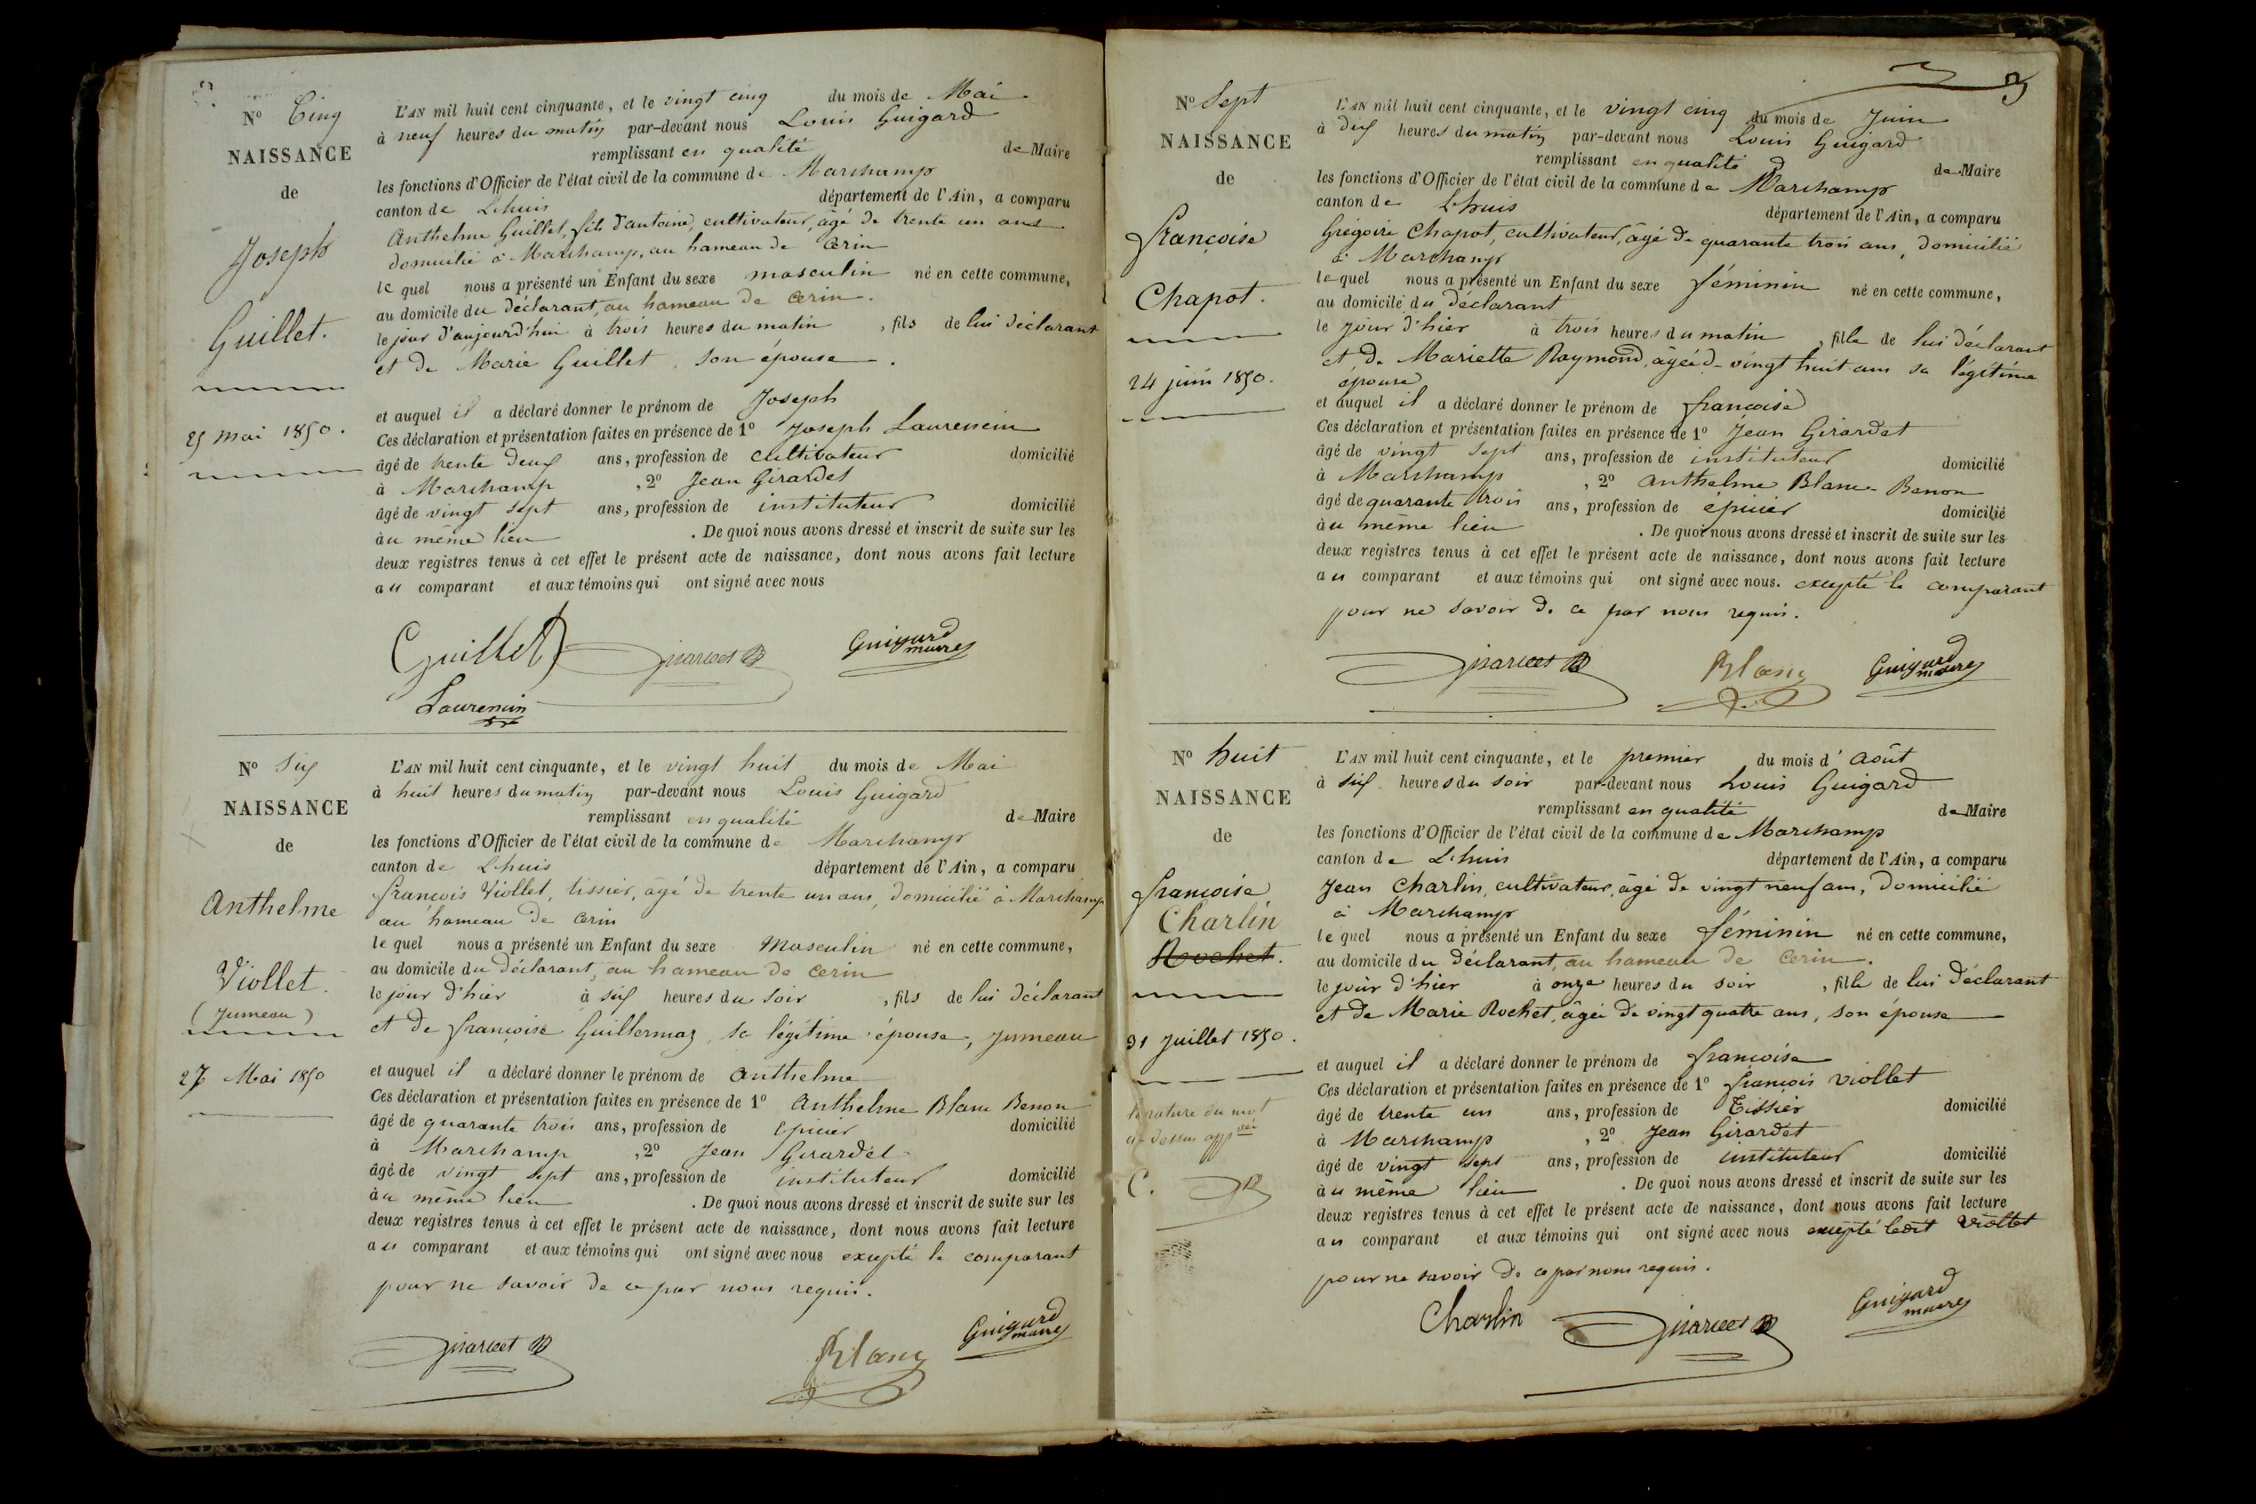 Nº Cinq
NAISSANCE
de
Joseph
Guillet.
25 mai 1850.
L'AN mil huit cent cinquante, et le vingt cinq du mois de Mai
à neuf heures du matin par-devant nous Louis Guigard
remplissant en qualité de Maire
les fonctions d'Officier de l'état civil de la commune de Marchamp
canton de Lhuis département de l'Ain, a comparu
Anthelme Guillet, fils d'antoine, cultivateur, âgé de trente un ans
domicilié à Marchamp, au hameau de Cerin
lequel nous a présenté un Enfant du sexe masculin né en cette commune,
au domicile du déclarant, au hameau de Cerin.
le jour d'aujourd'hui à trois heures du matin, fils de lui déclarant
et de Marie Guillet, son épouse.
et auquel il a déclaré donner le prénom de Joseph
Ces déclaration et présentation faites en présence de 1º Joseph Laurencin
âgé de trente deux ans, profession de cultivateur domicilié
à Marchamp, 2º Jean Girardet
âgé de vingt sept ans, profession de instituteur domicilié
au même lieu. De quoi nous avons dressé et inscrit de suite sur les
deux registres tenus à cet effet le présent acte de naissance, dont nous avons fait lecture
au comparant et aux témoins qui ont signé avec nous
Guillet Girardet Guigard maire
Laurencin
Nº Six
NAISSANCE
de
Anthelme
Viollet.
(Jumeau)
27 Mai 1850
L'AN mil huit cent cinquante, et le vingt huit du mois de Mai
à huit heures du matin par-devant nous Louis Guigard
remplissant en qualité de Maire
les fonctions d'Officier de l'état civil de la commune de Marchamp
canton de Lhuis département de l'Ain, a comparu
françois Viollet, tissier, âgé de trente un ans, domicilié à Marchamp
au hameau de Cerin
lequel nous a présenté un Enfant du sexe Masculin né en cette commune,
au domicile du déclarant, au hameau de Cerin
le jour d'hier à six heures du soir, fils de lui déclarant
et de françoise Guillermaz, sa légitime épouse, jumeau
et auquel il a déclaré donner le prénom de anthelme
Ces déclaration et présentation faites en présence de 1º Anthelme Blanc Benon
âgé de quarante trois ans, profession de épicier domicilié
à Marchamp, 2º Jean Girardet
âgé de vingt sept ans, profession de instituteur domicilié
au même lieu. De quoi nous avons dressé et inscrit de suite sur les
deux registres tenus à cet effet le présent acte de naissance, dont nous avons fait lecture
au comparant et aux témoins qui ont signé avec nous excepté le comparant
pour ne savoir de ce par nous requis.
Girardet Blanc Guigard maire
3
Nº Sept
NAISSANCE
de
françoise
Chapot.
24 juin 1850.
L'AN mil huit cent cinquante, et le vingt cinq du mois de Juin
à dix heures du matin par-devant nous Louis Guigard
remplissant en qualité de Maire
les fonctions d'Officier de l'état civil de la commune de Marchamp
canton de Lhuis département de l'Ain, a comparu
Grégoire Chapot, cultivateur, âgé de quarante trois ans, domicilié
à Marchamp
lequel nous a présenté un Enfant du sexe féminin né en cette commune,
au domicile du déclarant
le jour d'hier à trois heures du matin, fille de lui déclarant
et de Mariette Raymond, âgée de vingt huit ans sa légitime
épouse
et auquel il a déclaré donner le prénom de françoise
Ces déclaration et présentation faites en présence de 1º Jean Girardet
âgé de vingt sept ans, profession de instituteur domicilié
à Marchamp, 2º anthelme Blanc-Benon
âgé de quarante trois ans, profession de épicier domicilié
au même lieu. De quoi nous avons dressé et inscrit de suite sur les
deux registres tenus à cet effet le présent acte de naissance, dont nous avons fait lecture
au comparant et aux témoins qui ont signé avec nous. excepté le comparant
pour ne savoir de ce par nous requis.
Girardet Blanc Guigard maire
Nº huit
NAISSANCE
de
françoise
Charlin
Rochet.
31 juillet 1850.
Rature du mot
ci-dessus appvée
C. G
L'AN mil huit cent cinquante, et le premier du mois d'août
à six heures du soir par-devant nous Louis Guigard
remplissant en qualité de Maire
les fonctions d'Officier de l'état civil de la commune de Marchamp
canton de Lhuis département de l'Ain, a comparu
Jean Charlin, cultivateur, âgé de vingt neuf ans, domicilié
à Marchamp
lequel nous a présenté un Enfant du sexe féminin né en cette commune,
au domicile du déclarant, au hameau de Cerin.
le jour d'hier à onze heures du soir, fille de lui déclarant
et de Marie Rochet, âgée de vingt quatre ans, son épouse
et auquel il a déclaré donner le prénom de françoise
Ces déclaration et présentation faites en présence de 1º françois Viollet
âgé de trente un ans, profession de Tissier domicilié
à Marchamp, 2º Jean Girardet
âgé de vingt sept ans, profession de instituteur domicilié
au même lieu. De quoi nous avons dressé et inscrit de suite sur les
deux registres tenus à cet effet le présent acte de naissance, dont nous avons fait lecture
au comparant et aux témoins qui ont signé avec nous excepté ledit Viollet
pour ne savoir de ce par nous requis.
Charlin Girardet Guigard maire